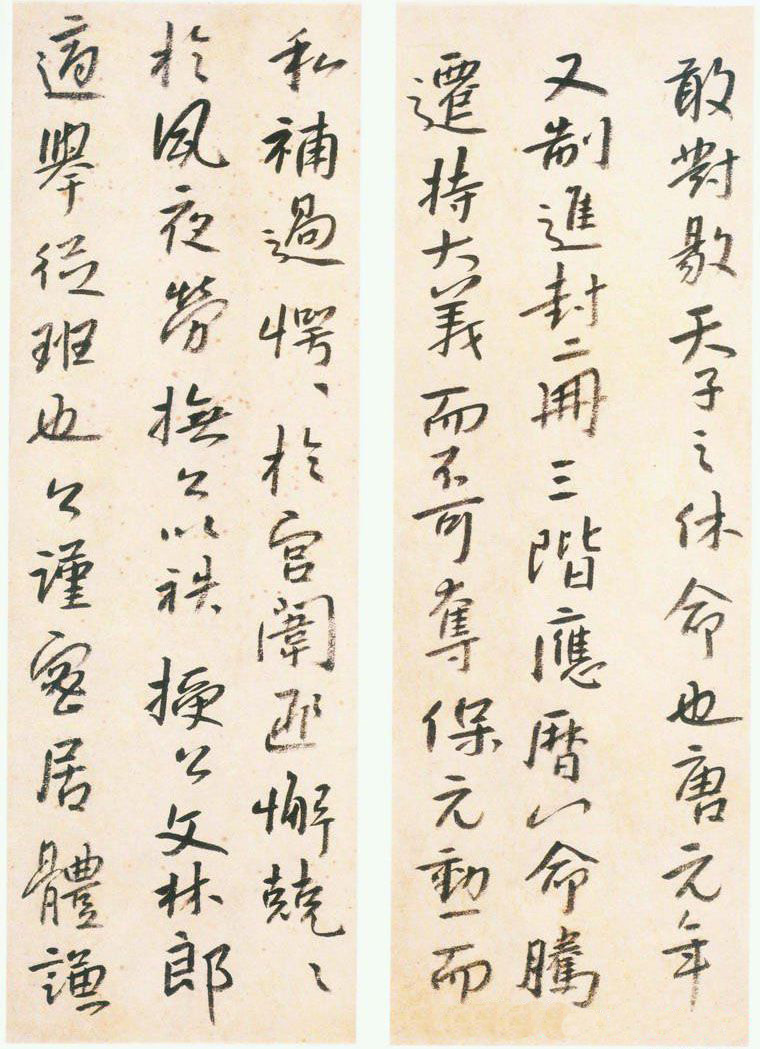 敢對敭天子之休命也唐元年
又制進封二冊三階應曆以命騰
遷持大義而不可奪保元勳一而
私補過愕〻於宮闈匪懈兢〻
於夙夜勞撫公以袟授公文林郎
適舉從班也公謹密居體謙